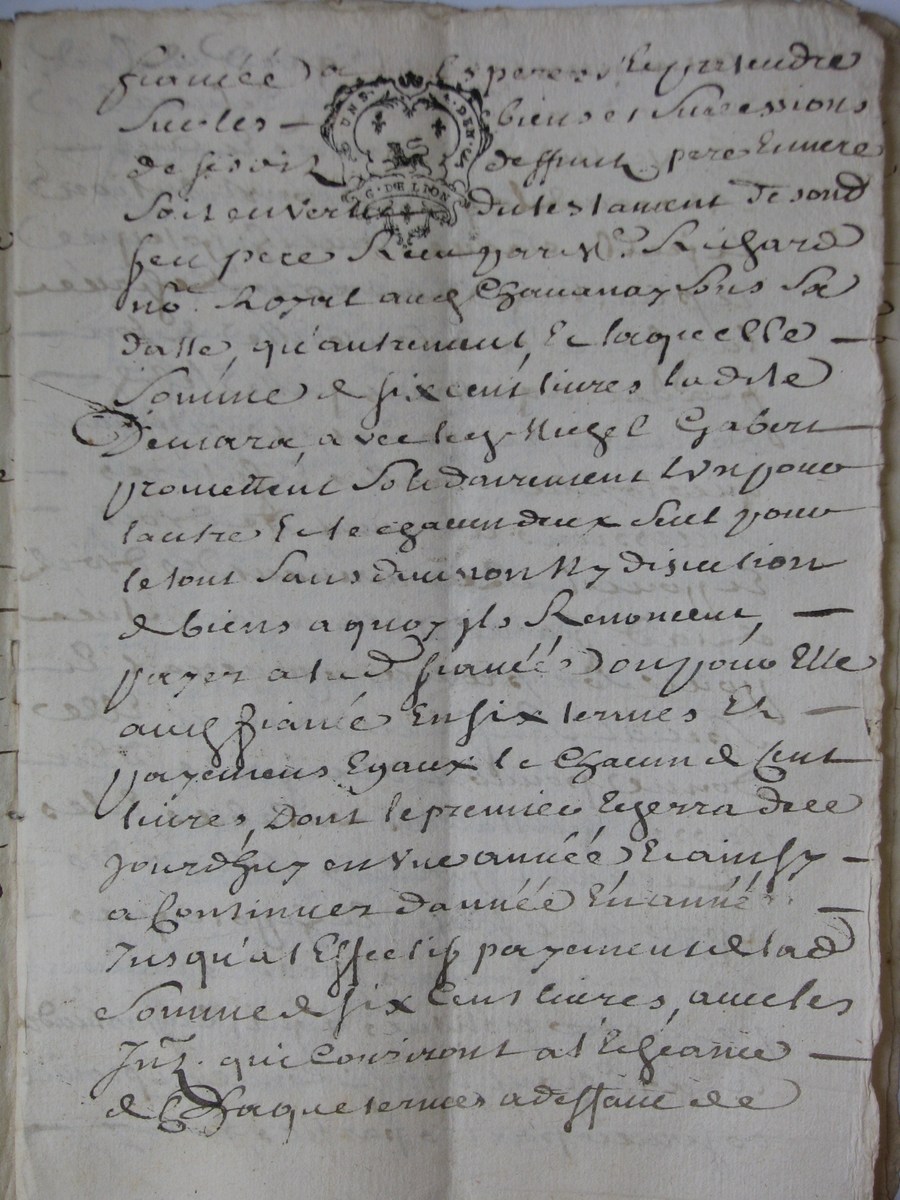 fiancée a esperer et pretendre
sur les — biens et successions
UN S. 4. DEN. LA
de sesdits deffunt pere et mere
G. DE LION
soit en vertu du testament de sond
feu pere Receu par Me. Richard
no.re Royal aud Chavanay sous sa
datte, qu'autrement, Et laquelle —
somme de six cent livres ladite
Demara, avec led Michel Gabert
promettent solidairement l'un pour
lautre Et le chacun deux seul pour
le tout sans division ny discution
de biens a quoy ils Renoncent, —
payer a lad fiancée Ou pour Elle
aud fiancé En six termes Et —
payemens Egaux le Chacun de Cent
livres, Dont le premier Echerra de ce
jourdhuy en une année Et ainsy —
a Continuer dannée En année —
Jusqu'a l'Effectif payement de lad
somme de six Cent livres, avec les
Jnts. qui Courront a l'Echeance —
de Chaque termes a deffaut de